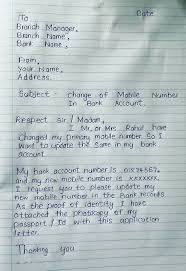 Date
To
Branch Manager,
Branch Name,
Bank Name,
From,
Your Name,
Address.
Subject - Change of Mobile Number
In Bank Account.
Respect Sir / Madam,
I Mr. or Mrs Rahul have
Changed my primary mobile number So I
Want to update the same in my bank
account
My bank account number is
and my new mobile number is xxxxxxx.
I request you to please update my
new mobile number in the Bank records
As the proof of identity I have
attached the photocopy of my
Passport / Id with this application
letter.
Thanking you